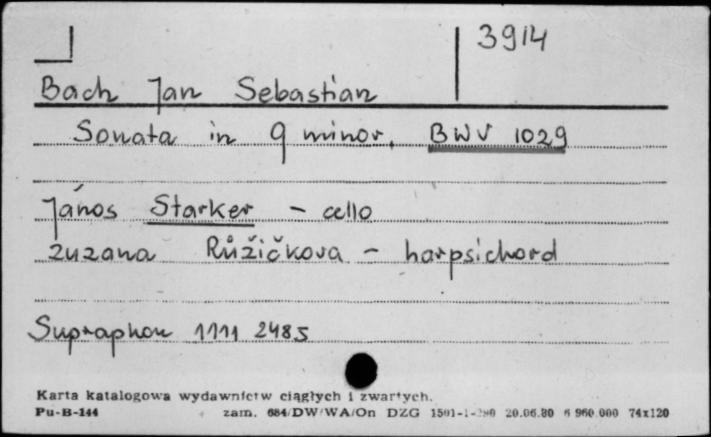 3914
Bach Jan Sebastian
Sonata in g minor, BWV 1029
János Starker - cello
Zuzana Růžičkova - harpsichord
Supraphon 1111 2485
Karta katalogowa wydawnictw ciągłych i zwartych.
Pu-B-144 zam. 684/DW/WA/On DZG 20.06.80 6 960 000 74x120